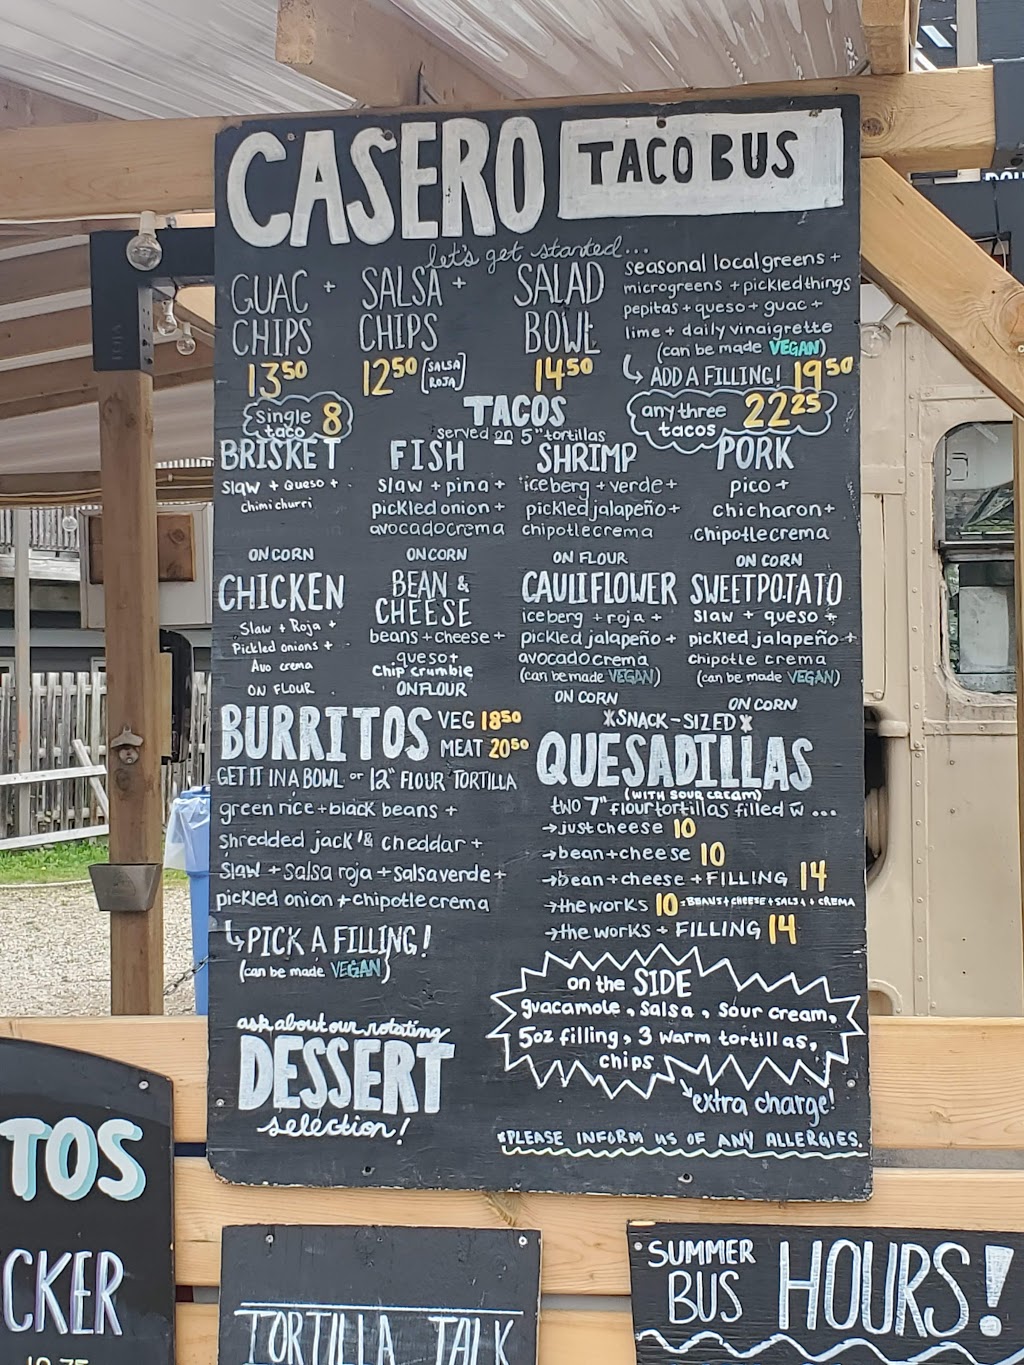 CASERO TACO BUS
let's get started...
GUAC + CHIPS
13⁵⁰
SALSA + CHIPS
12⁵⁰ [SALSA ROJA]
SALAD BOWL
14⁵⁰
seasonal local greens +
microgreens + pickled things
pepitas + queso + guac +
lime + daily vinaigrette
(can be made VEGAN)
↳ ADD A FILLING! 19⁵⁰
Single taco 8
TACOS
served on 5" tortillas
any three tacos 22²⁵
BRISKET
Slaw + Queso +
chimichurri
ON CORN
FISH
slaw + pina +
pickled onion +
avocado crema
ON CORN
SHRIMP
iceberg + verde +
pickled jalapeño +
chipotle crema
ON FLOUR
PORK
pico +
chicharon +
chipotle crema
ON CORN
CHICKEN
Slaw + Roja +
Pickled onions +
Avo crema
ON FLOUR
BEAN &
CHEESE
beans + cheese +
queso +
chip crumble
ON FLOUR
CAULIFLOWER
iceberg + roja +
pickled jalapeño +
avocado crema
(can be made VEGAN)
ON CORN
SWEET POTATO
Slaw + queso +
pickled jalapeño +
chipotle crema
(can be made VEGAN)
ON CORN
BURRITOS VEG 18⁵⁰
MEAT 20⁵⁰
GET IT IN A BOWL or 12" FLOUR TORTILLA
green rice + black beans +
shredded jack '& cheddar +
Slaw + Salsa roja + Salsa verde +
pickled onion + chipotle crema
↳ PICK A FILLING!
(can be made VEGAN)
SNACK-SIZED
QUESADILLAS
(WITH SOUR CREAM)
two 7" flour tortillas filled w̄ ...
→ just cheese 10
→ bean + cheese 10
→ bean + cheese + FILLING 14
→ the works 10 = BEANS + CHEESE + SALSA + CREMA
→ the works + FILLING 14
on the SIDE
guacamole, Salsa, Sour cream,
5oz filling, 3 warm tortillas,
chips
extra charge!
ask about our rotating
DESSERT
selection!
*PLEASE INFORM US OF ANY ALLERGIES.
TOS
CKER
TORTILLA TALK
SUMMER BUS HOURS!